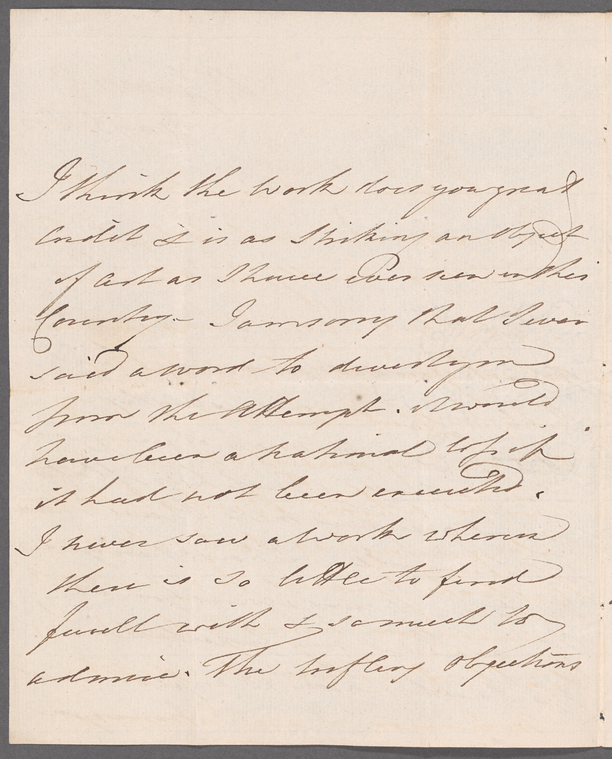 I think the Work does you great
credit & is as striking an object
of art as I have ever seen in this
Country – I am sorry that I ever
said a word to divert you
from the Attempt. it would
have been a national loss if
it had not been executed.
I never saw a work wherein
there is so little to find
fault with & so much to
admire. The trifling objections